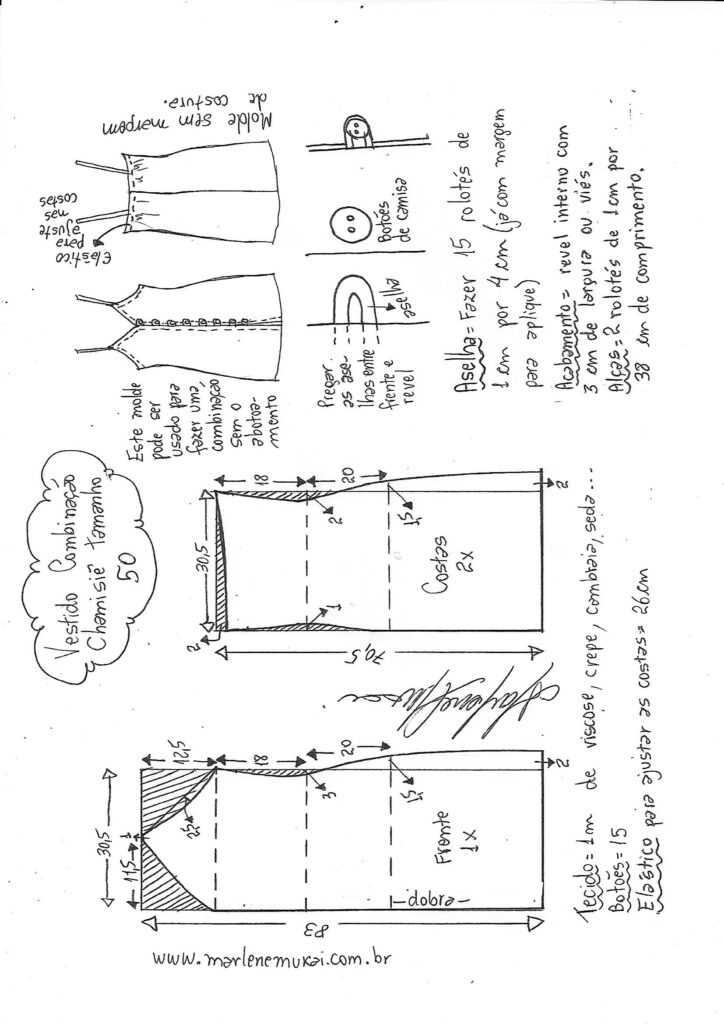 Vestido Combinação
Chamisiê tamanho
50
Este molde
pode ser
usado para
fazer uma
combinação
sem o
abotoa-
mento
Elástico
para
ajuste
nas
costas
Molde sem margem
de costura.
Pregar
as ase-
lhas entre
frente e
revel
aselha
Botões
de camisa
Aselha= Fazer 15 rolotés de
1 cm por 4 cm (já com margem
para aplique)
Acabamento= revel interno com
3 cm de largura ou viés.
Alças= 2 rolotés de 1 cm por
38 cm de comprimento.
30,5
11,5
1
12,5
2,5
18
20
3
1,5
2
83
Frente
1x
—dobra—
30,5
2
18
20
2
1
1,5
2
70,5
Costas
2x
www.marlenemukai.com.br
Tecido= 1m de viscose, crepe, cambraia, seda...
Botões= 15
Elástico para ajustar as costas= 26cm